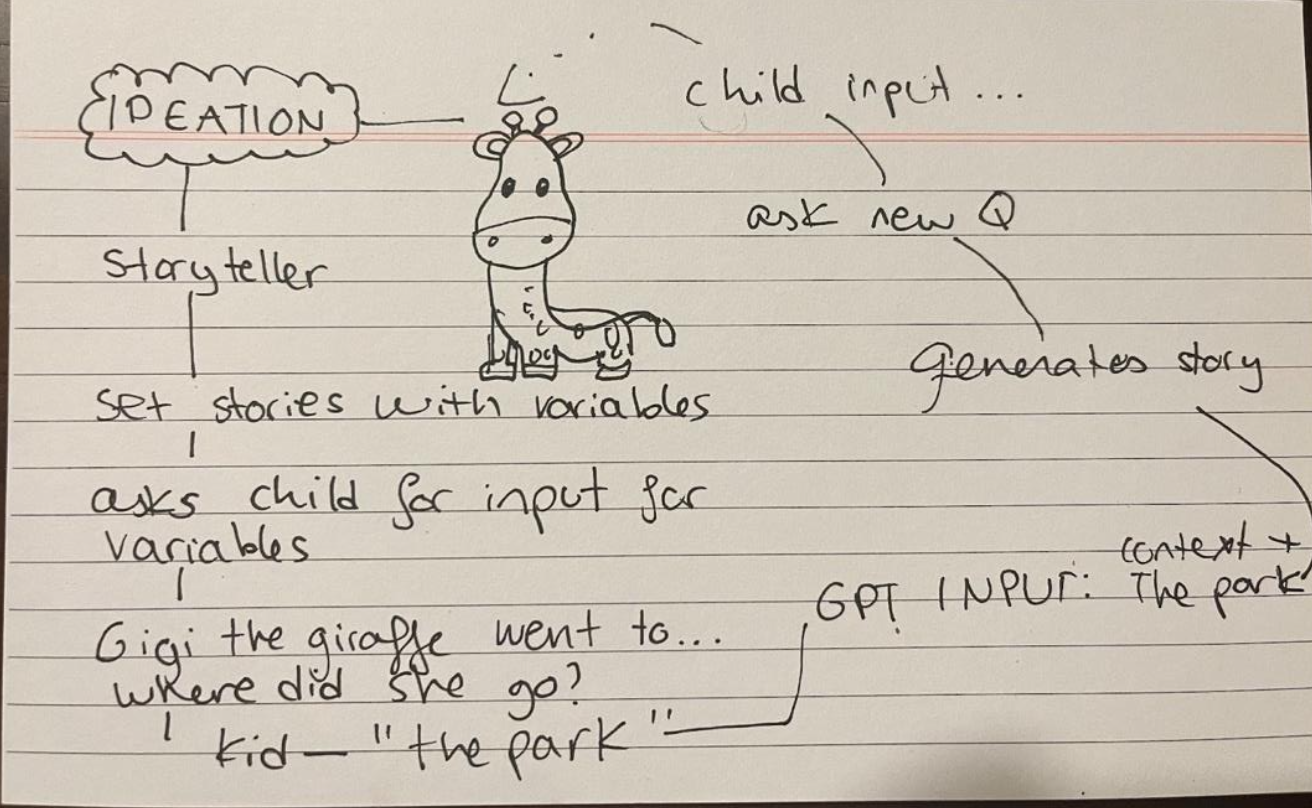 IDEATION
Storyteller
set stories with variables
asks child for input for
variables
Gigi the giraffe went to...
where did she go?
kid — "the park"
GPT INPUT: context +
The park
generates story
ask new Q
child input ...